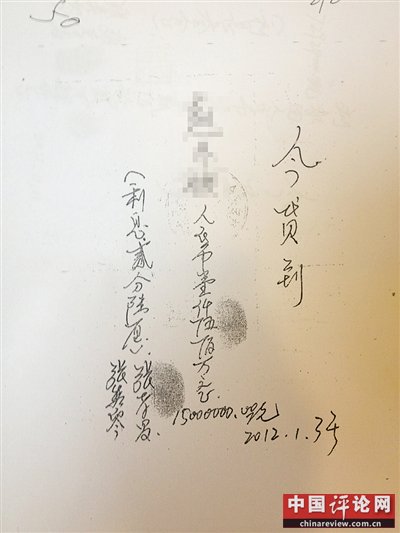 50
今贷到
人民币壹仟伍佰万元
15000000.00元
2012.1.3号
(利息贰分陆厘)
张
张
中国评论网
chinareview.com.cn